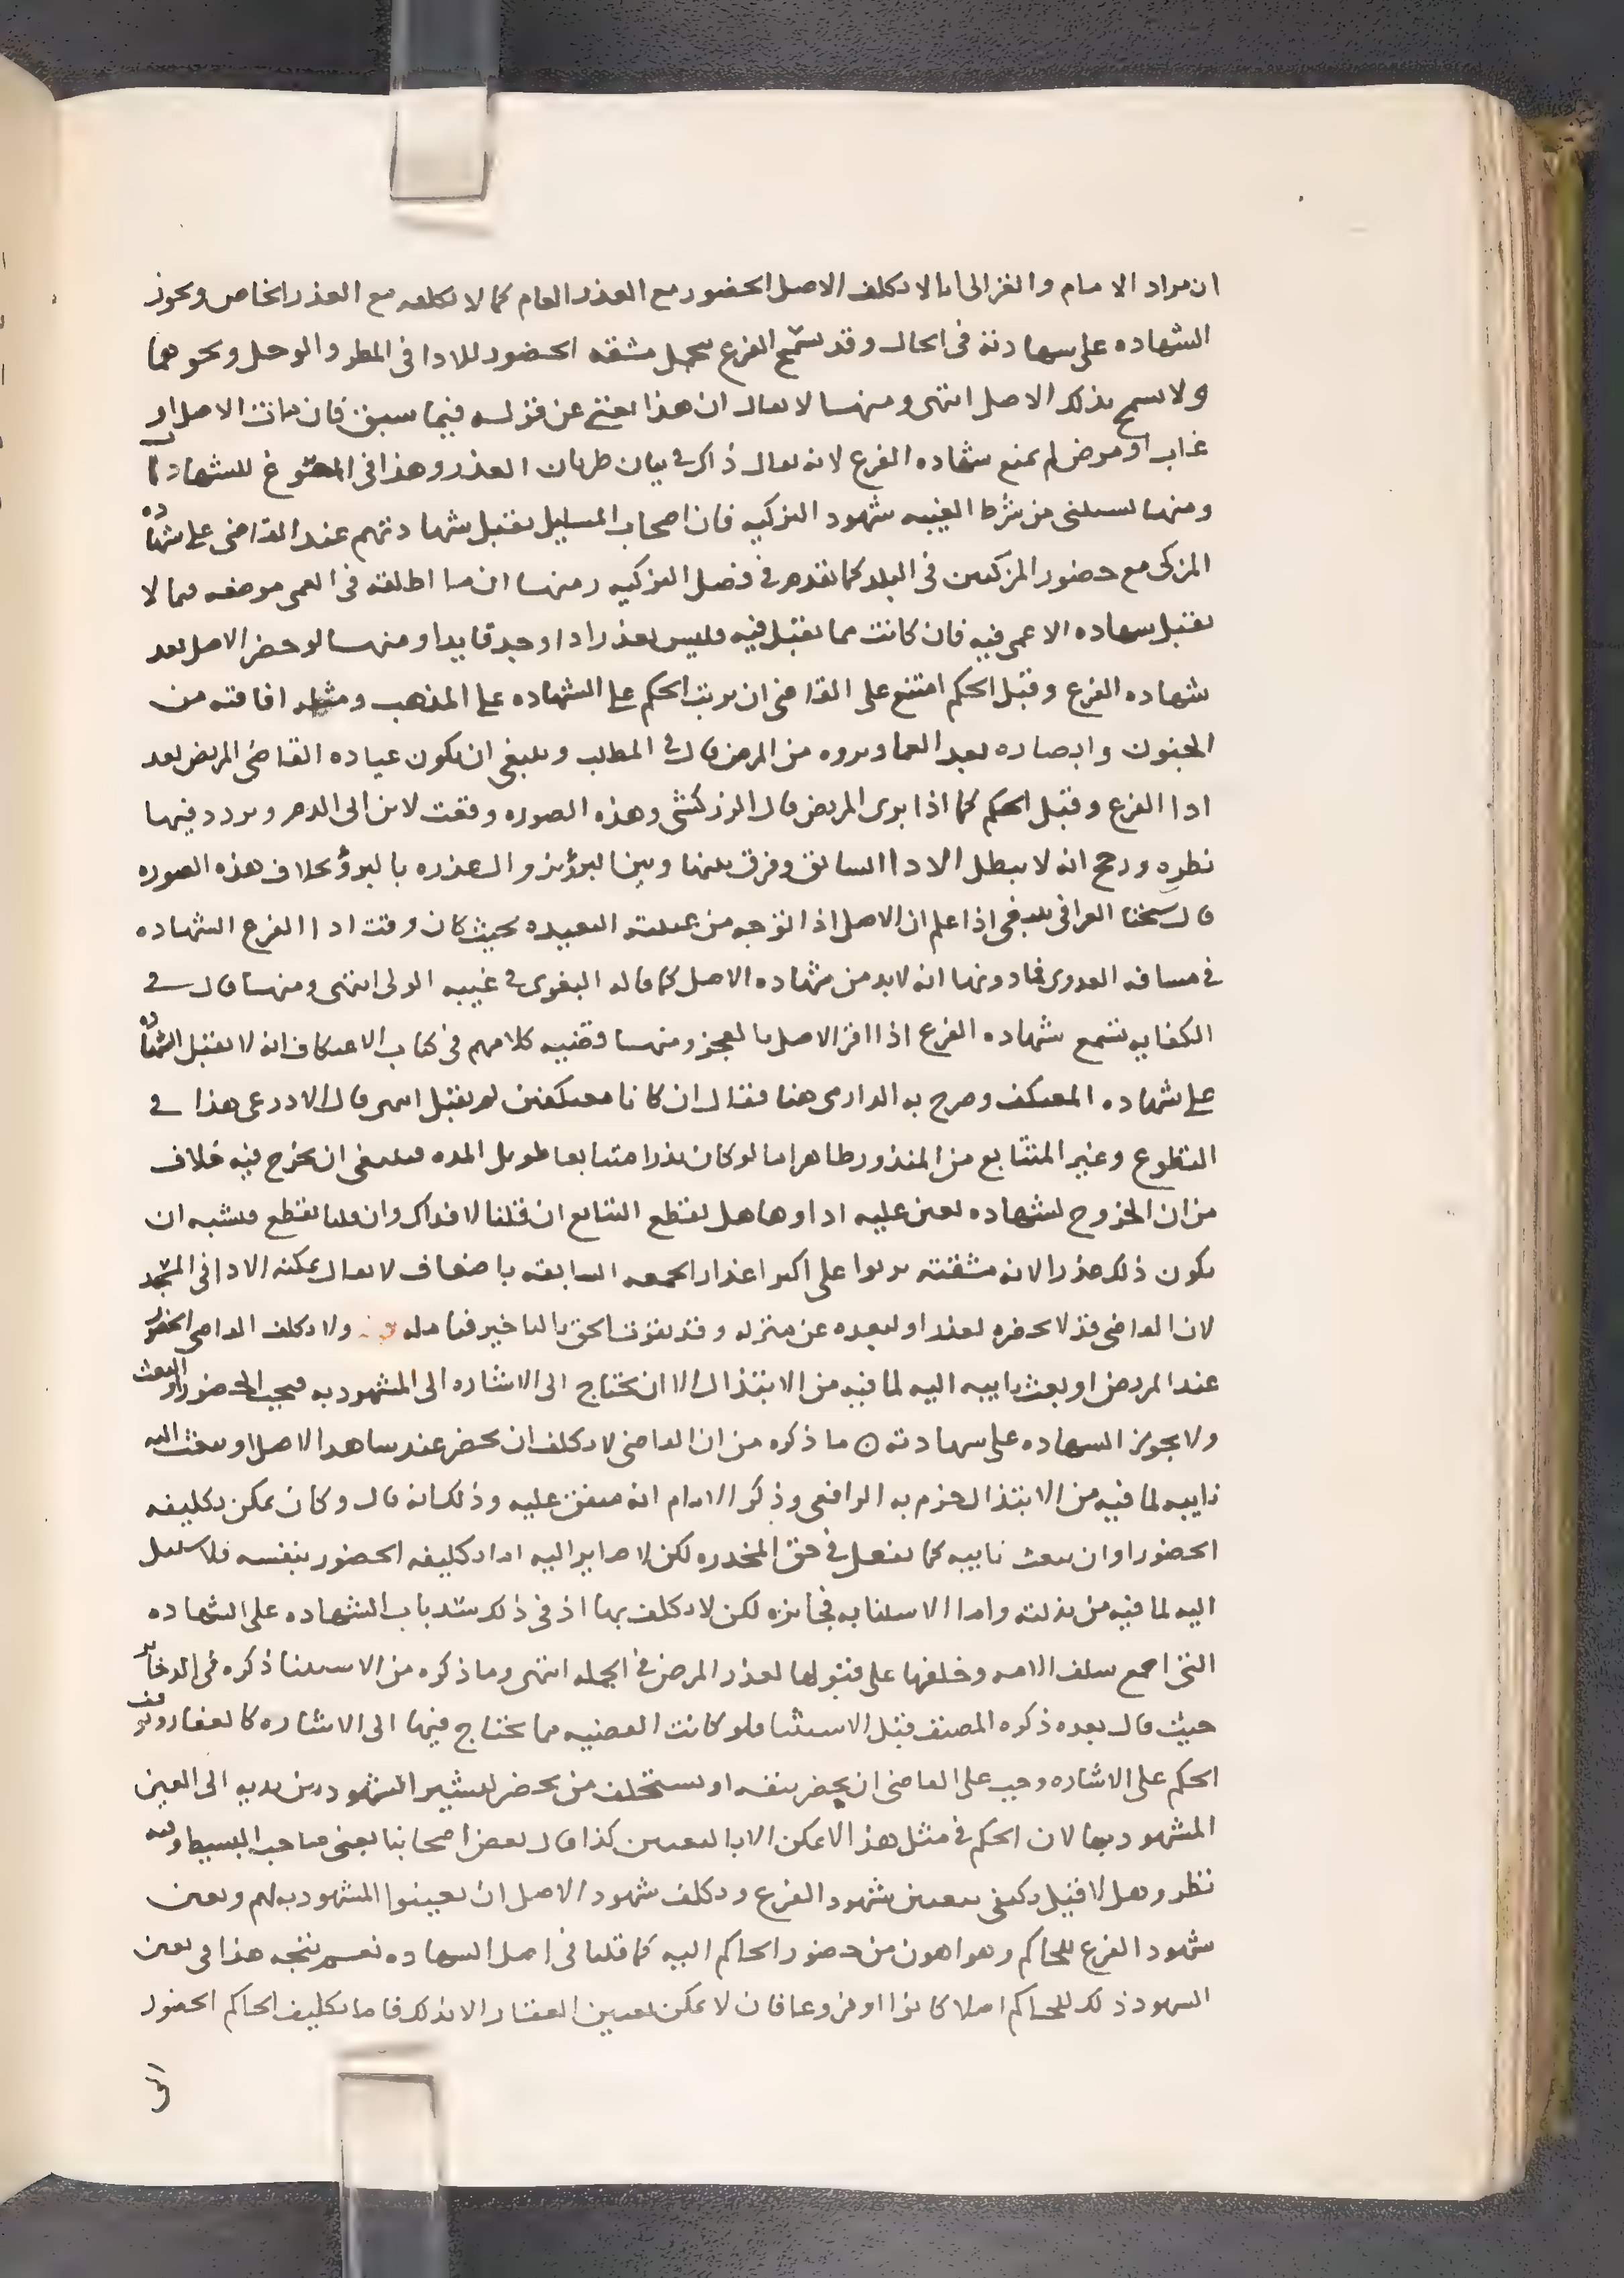 ان مراد الامام والغزالى انا لا نكلف الاصل الحضور مع العذر العام كما لا نكلفه مع العذر الخاص ونجوز
الشهاده على شهادته فى الحال وقد يسمح الفرع بتحمل مشقه الحضور للادا فى المطر والوحل ونحوهما
ولا يسمح بذلك الاصل انتهى ومنها لا يقال ان هذا يغنى عن قوله فيما سبق فان مات الاصل او
غاب او مرض لم يمنع شهاده الفرع لانه يقال ذاك فى بيان طريان العذر وهذا فى المسوغ للشهاده
ومنها يستثنى من شرط الغيبه شهود التزكيه فان اصحاب المسايل يقبل شهادتهم عند القاضى على شهاده
المزكى مع حضور المزكين فى البلد كما تقدم فى فصل التزكيه ومنها ان ما اطلقه فى العمى موضعه فيما لا
يقبل شهاده الاعمى فيه فان كانت مما يقبل فيه فليس بعذر اذا وجد قايدا ومنها لو حضر الاصل بعد
شهاده الفرع وقبل الحكم امتنع على القاضى ان يرتب الحكم على الشهاده على المذهب ومثله افاقته من
الجنون وابصاره بعد العما وبروه من المرض قال فى المطلب وينبغى ان يكون عياده القاضى المريض بعد
ادا الفرع وقبل الحكم كما اذا برى المريض قال الزركشى وهذه الصوره وقعت لابن ابى الدم وتردد فيها
نظره ورجح انه لا يبطل الادا السابق وفرق بينها وبين البرؤ بزوال عذره بالبرؤ بخلاف هذه الصوره
قال شيخنا العراقى ينبغى اذا علم ان الاصل اخذ التوجه من غيبته البعيده بحيث كان وقت ادا الفرع الشهاده
فى مسافه العدوى فما دونها انه لا بد من شهاده الاصل كما قاله البغوى فى غيبه الولى انتهى ومنها قال فى
الكفايه تسمع شهاده الفرع اذا اقر الاصل بالعجز ومنها قضيه كلامهم فى كتاب الاعتكاف انه لا تقبل الشهاده
على شهاده المعتكف وصرح به الدارمى هنا فقال ان كانا معتكفين لم يقبل انتهى قال الاذرعى هذا فى
التطوع وغير المتتابع من المنذور ظاهر اما لو كان نذرا متتابعا طويل المده فينبغى ان يخرج فيه خلاف
من ان الخروج لشهاده تعين عليه اداوها هل يقطع التتابع ان قلنا لا فذاك وان قلنا يقطع فيشبه ان
يكون ذلك عذرا لانه مشقته تربوا على اكبر اعذار الجمعه السابقه باضعاف لا يقال يمكنه الادا فى المسجد
لان القاضى قد لا يحضره لعذر او لبعده عن منزله وقد يفوت الحق بالتاخير فتامله ولا يكلف القاضى الحضور
عند المريض او بعث نايبه اليه لما فيه من الابتذال الا ان يحتاج الى الاشاره الى المشهود به فيجب الحضور او البعث
ولا يجوز الشهاده على شهادته ن ما ذكره من ان القاضى لا يكلف ان يحضر عند شاهد الاصل او يبعث اليه
نايبه لما فيه من الابتذال جزم به الرافعى وذكر الامام انه متفق عليه وذلك انه قال وكان يمكن تكليفه
الحضور او ان يبعث نايبه كما يفعل فى حق المخدره لكن لا صاير اليه اما تكليفه الحضور بنفسه فلا سبيل
اليه لما فيه من بذلته واما الاستنابه فجايزه لكن لا يكلف بها اذ فى ذلك سد باب الشهاده على الشهاده
التى اجمع سلف الامه وخلفها على قبولها لعذر المرض فى الجمله انتهى وما ذكره من الاستثنا ذكره فى الذخاير
حيث قال بعده ذكره المصنف قبل الاستثنا فلو كانت القضيه مما يحتاج فيها الى الاشاره كالعقار ووقف
الحكم على الاشاره وجب على القاضى ان يحضر بنفسه او يستخلف من يحضر ليشير الشهود من يديه الى العين
المشهود بها لان الحكم فى مثل هذا لا يمكن الا بالتعيين كذا قال بعض اصحابنا يعنى صاحب البسيط وفيه
نظر وهلا قيل يكفى تعيين شهود الفرع ويكلف شهود الاصل ان يعينوا المشهود به لهم ويعين
شهود الفرع للحاكم وهو اهون من حضور الحاكم اليه كما قلنا فى اصل الشهاده نعم يتجه هذا فى تعين
الشهود ذلك للحاكم اصلا كانوا او فروعا فان لا يمكن تعيين العقار الا بذلك فاما تكليف الحاكم الحضور